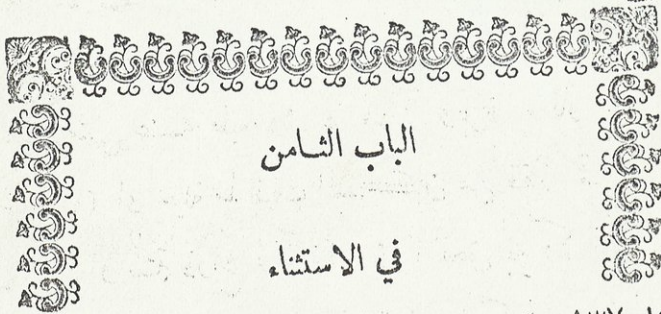 الباب الثامن
في الاستثناء